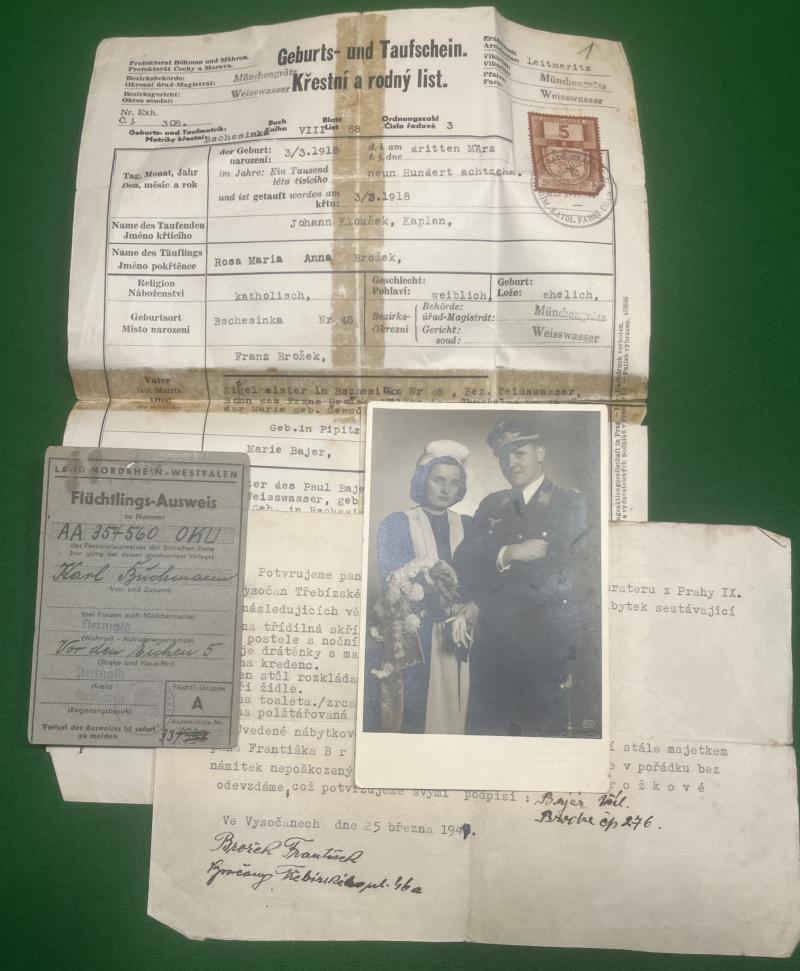 Protektorat Böhmen und Mähren.
Protektorát Čechy a Morava.
Bezirksbehörde:
Okresní úřad-Magistrát: Münchengrätz
Bezirksgericht:
Okres soudní: Weisswasser
Geburts- und Taufschein.
Křestní a rodný list.
1
Leitmeritz
Münchengrätz
Weisswasser
Nr. Exh.
Č. j. 308.
Geburts- und Taufmatrik:
Matriky křestní: Bschesinka
Buch
Kniha VIII
Blatt
List 68
Ordnungszahl
Číslo řadové 3
5
K
Tag, Monat, Jahr
Den, měsíc a rok
der Geburt:
narození: 3/3.1918
d. i. am
t. j. dne dritten März
im Jahre: Ein Tausend
léta tisícího neun Hundert achtzehn.
und ist getauft worden am
křtu: 3/3.1918
Name des Taufenden
Jméno křtícího
Johann Klouček, Kaplan,
Name des Täuflings
Jméno pokřtěnce
Rosa Maria Anna Brožek,
Religion
Náboženství
katholisch,
Geschlecht:
Pohlaví: weiblich,
Geburt:
Lože: ehelich,
Geburtsort
Místo narození
Bschesinka Nr 48
Bezirks-
Okresní
Behörde:
úřad-Magistrát: Münchengrätz
Gericht:
soud: Weisswasser
Franz Brožek,
Vater
laut Matrik
Otec
dle matriky
Zigelmeister in Bschesinka Nr 48, Bez. Weisswasser,
Sohn des Franz Brožek
der Marie geb.
Geb.in Pipitz
Marie Bajer,
ter des Paul Baje
Weisswasser, geb
Geb. in Bschesi
LAND NORDRHEIN-WESTFALEN
Flüchtlings-Ausweis
zu Nummer
AA 354560 OKU
des Personalausweises der Britischen Zone
(nur gültig bei dessen gleichzeitiger Vorlage)
Karl Buchmann
Vor- und Zuname
(bei Frauen auch Mädchenname)
Detmold
(Wohnort - Aufnahmegemeinde)
Vor den Eichen 5
(Straße und Haus-Nr.)
Detmold
(Kreis)
Detmold
(Regierungsbezirk)
Flüchtl.-Gruppe
A
Ausweisliste Nr.
Verlust des Ausweises ist sofort
zu melden
Potvrujeme pan
arateru z Prahy IX.
Vysočan Třebízské
bytek sestávající
následujicích vě
na třídilná skří
postele s noční
je drátěnky s ma
na kredenc.
en stůl rozkláda
ři židle.
na toaleta./zrca
na polštářovaná
Uvedené nábytkov
í stále majetkem
pana Františka B r
e v pořádku bez
námitek nepoškozený
r o ž k o v é
odevzdáme,což potvrzujeme svými podpisi :
Bajer Vil.
Brocke čp 276.
Ve Vysočanech dne 25 března 194
Brožek František